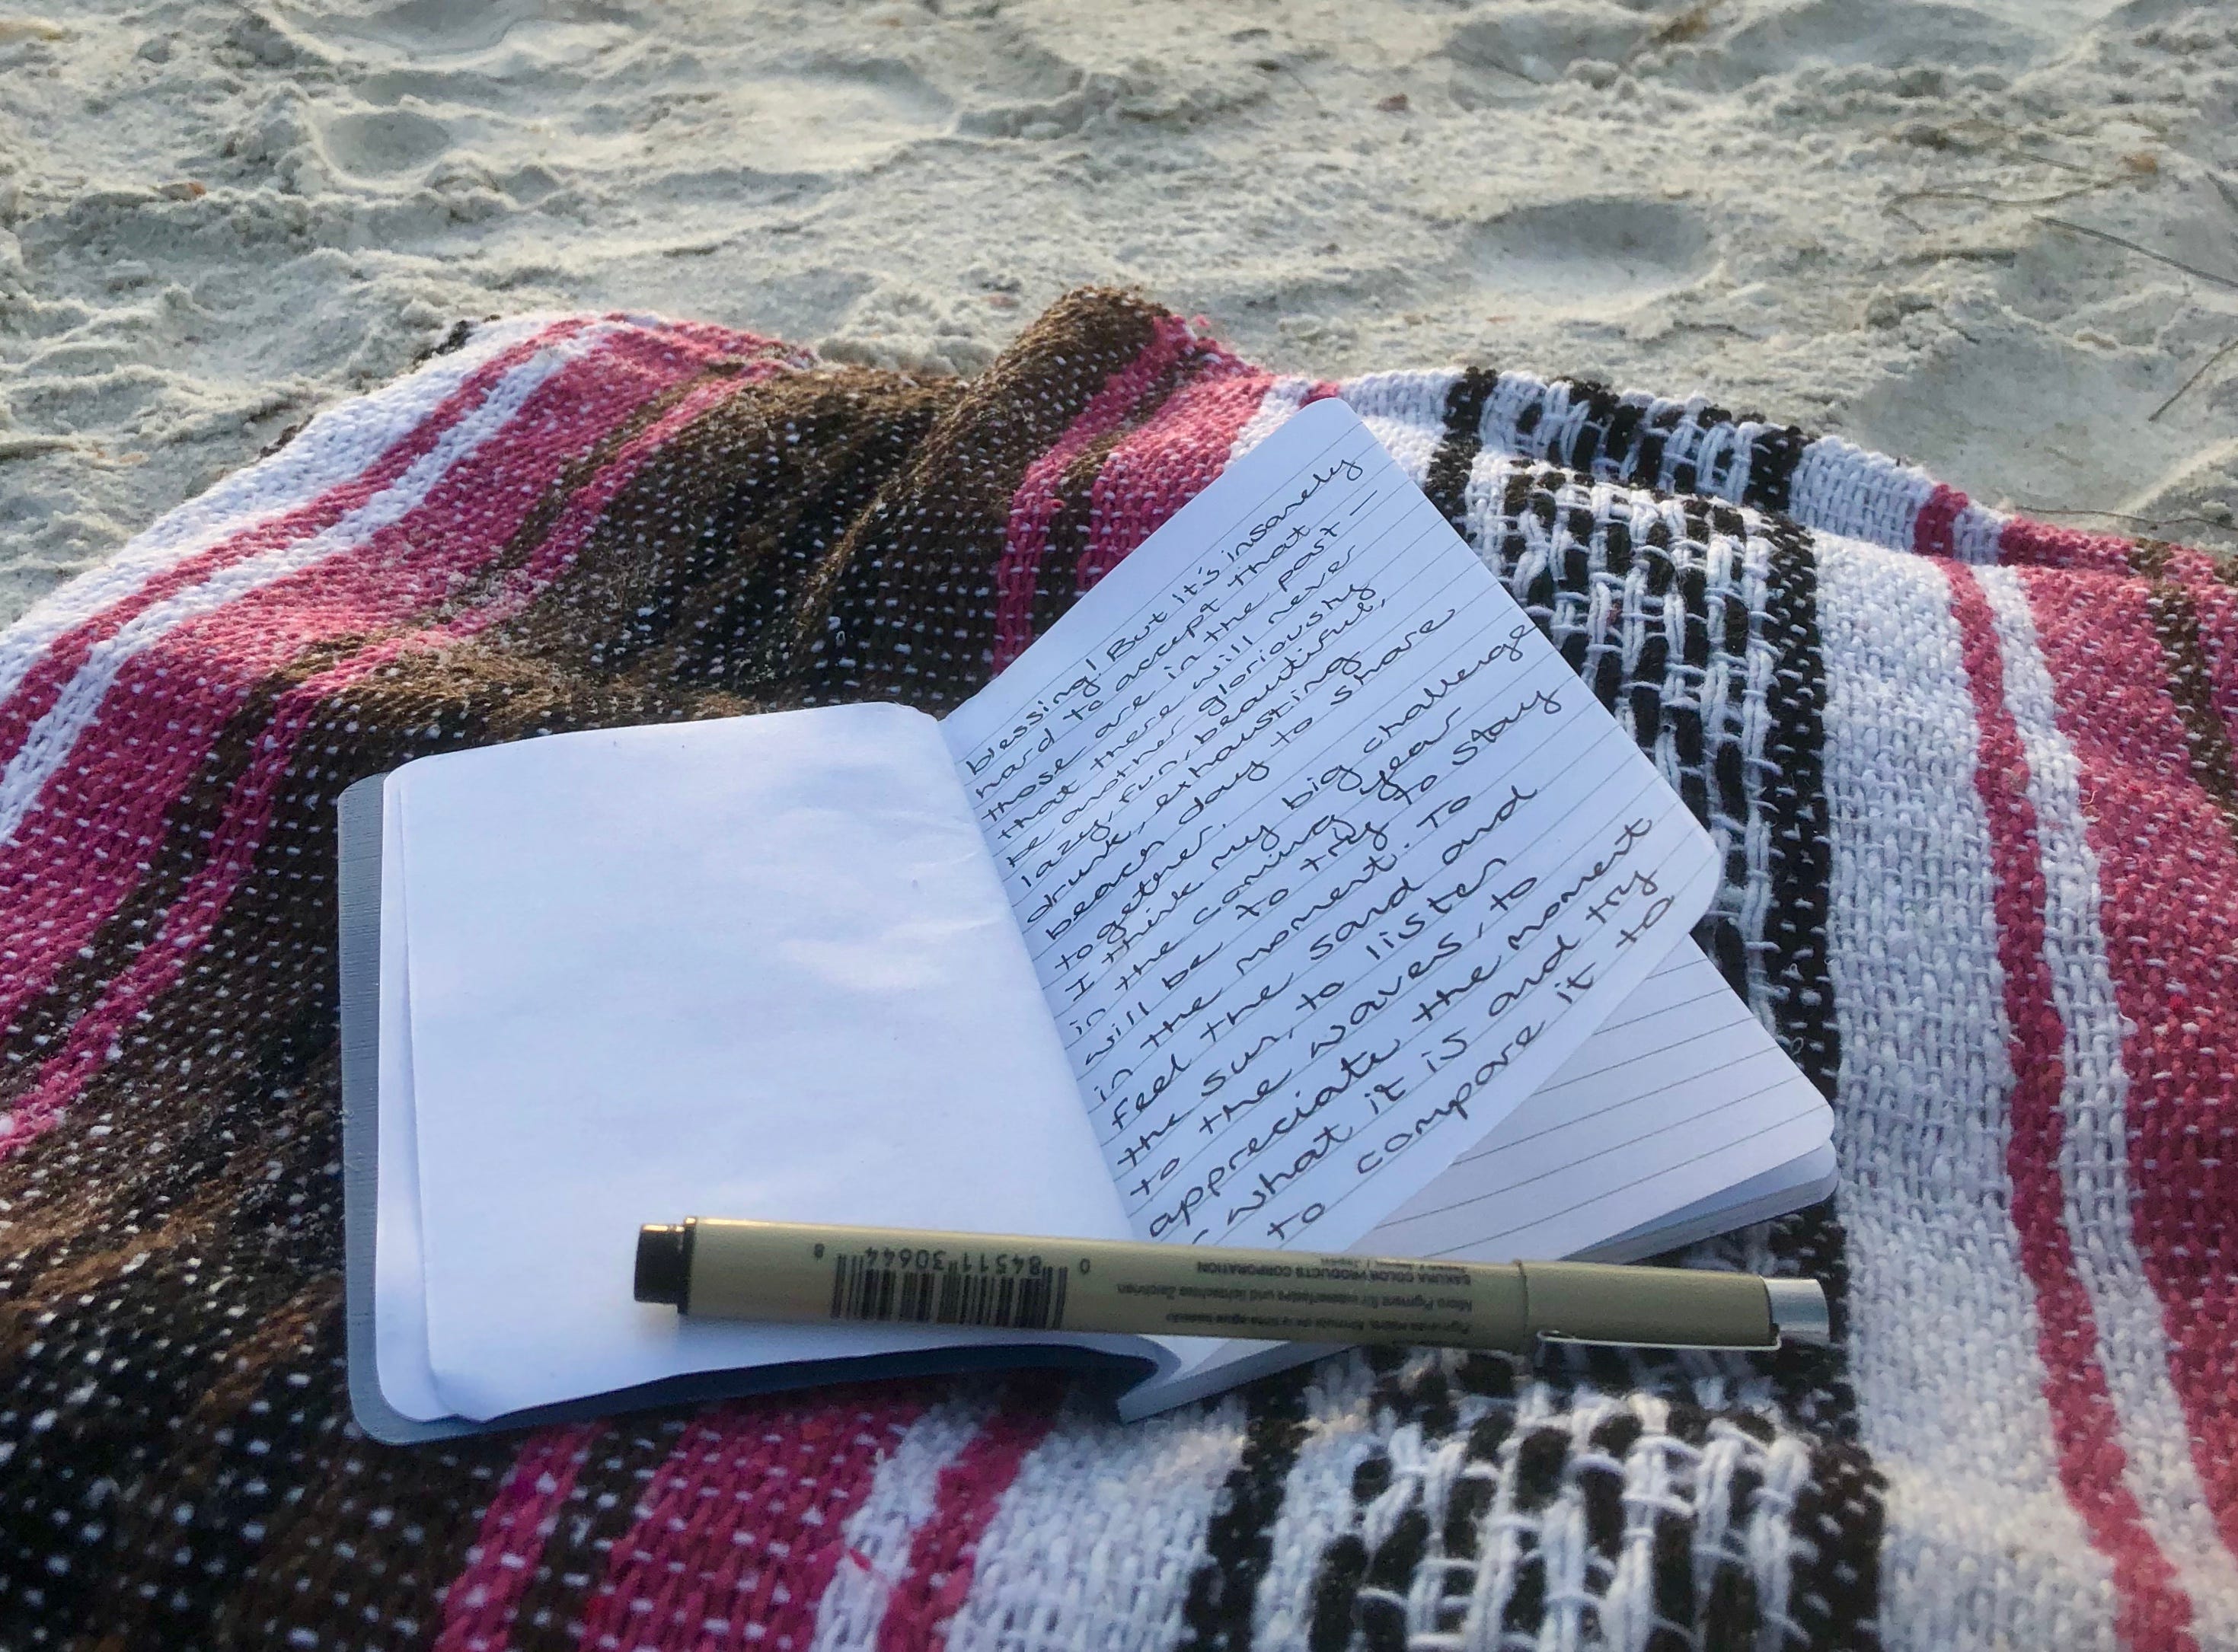 blessing! But it's insanely
hard to accept that
those are in the past —
that there will never
be another gloriously
lazy, fun, beautiful,
drunk, exhausting
beach day to share
together.
I think my big challenge
in the coming year
will be to try to stay
in the moment. To
feel the sand and
the sun, to listen
to the waves, to
appreciate the moment
- what it is and try
to compare it to
0 84511 30644 8
SAKURA COLOR PRODUCTS CORPORATION